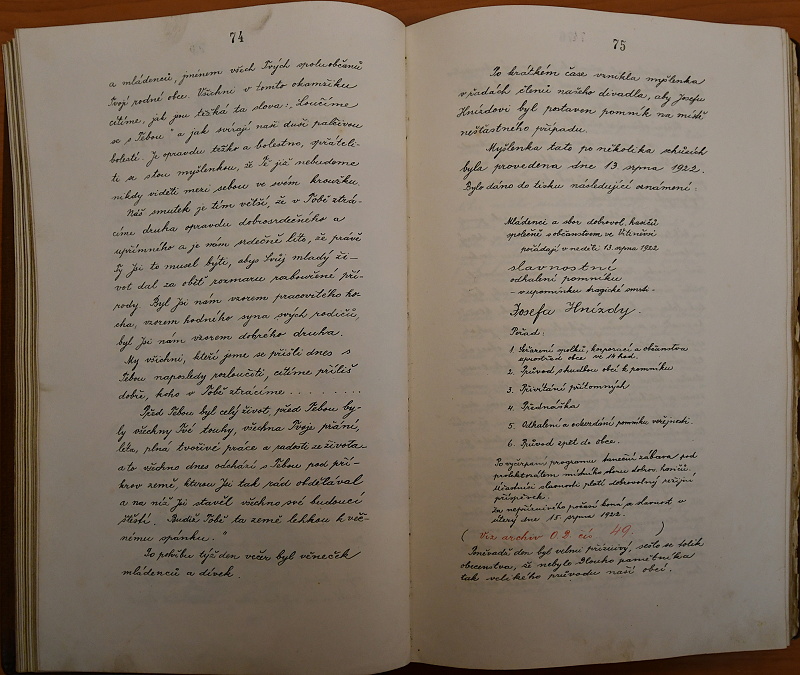 74
a mládenců, jménem všech Tvých spoluobčanů
Tvojí rodné obce. Všichni v tomto okamžiku
cítíme, jak jsou těžká ta slova: „Loučíme
se s Tebou" a jak svírají naši duši palčivou
bolestí. Je opravdu těžko a bolestno, spřáteli-
ti se s tou myšlenkou, že Tě již nebudeme
nikdy viděti mezi sebou ve svém kroužku.
Náš smutek je tím větší, že v Tobě ztrá-
címe druha opravdu dobrosrdečného a
upřímného a je nám srdečně líto, že právě
Ty jsi to musel býti, abys Svůj mladý ži-
vot dal za oběť rozmaru rozbouřené pří-
rody. Byl Jsi nám vzorem pracovitého ho-
cha, vzorem hodného syna svých rodičů,
byl Jsi nám vzorem dobrého druha.
My všichni, kteří jsme se přišli dnes s
Tebou naposledy rozloučiti, cítíme příliš
dobře, koho v Tobě ztrácíme . . . . . . . .
Před Tebou byl celý život, před Tebou by-
ly všechny Tvé touhy, všechna Tvoje přání,
léta, plná tvořivé práce a radosti ze života
a to všechno dnes odchází s Tebou pod pří-
krov země, kterou Jsi tak rád obdělával
a na níž Jsi stavěl všechno své budoucí
štěstí. Budiž Tobě ta země lehkou k věč-
nému spánku."
Po pohřbu týž den večer byl věneček
mládenců a dívek.
75
Po krátkém čase vznikla myšlenka
v řadách členů našeho divadla, aby Josefu
Hnízdovi byl postaven pomník na místě
nešťastného případu.
Myšlenka tato po několika schůzích
byla provedena dne 13. srpna 1922.
Bylo dáno do tisku následující oznámení:
Mládenci a sbor dobrovol. hasičů
společně s občanstvem ve
pořádají v neděli 13. srpna 1922
slavnostní
odhalení pomníku
- v upomínku tragické smrti -
Josefa Hnízdy.
Pořad:
1. Seřazení spolků, korporací a občanstva
uprostřed obce ve 14 hod.
2. Průvod s hudbou obcí k pomníku
3. Přivítání přítomných
4. Přednáška
5. Odhalení a odevzdání pomníku veřejnosti.
6. Průvod zpět do obce.
Po vyčerpání programu taneční zábava pod
protektorátem místního sboru dobrov. hasičů.
Účastníci slavnosti platí dobrovolný režijní
příspěvek.
Za nepříznivého počasí koná se slavnost v
úterý dne 15. srpna 1922.
( Viz archiv O 2. čís 49. )
Poněvadž den byl velmi příznivý, sešlo se tolik
obecenstva, že nebylo dlouho pamětníka
tak velikého průvodu naší obcí.